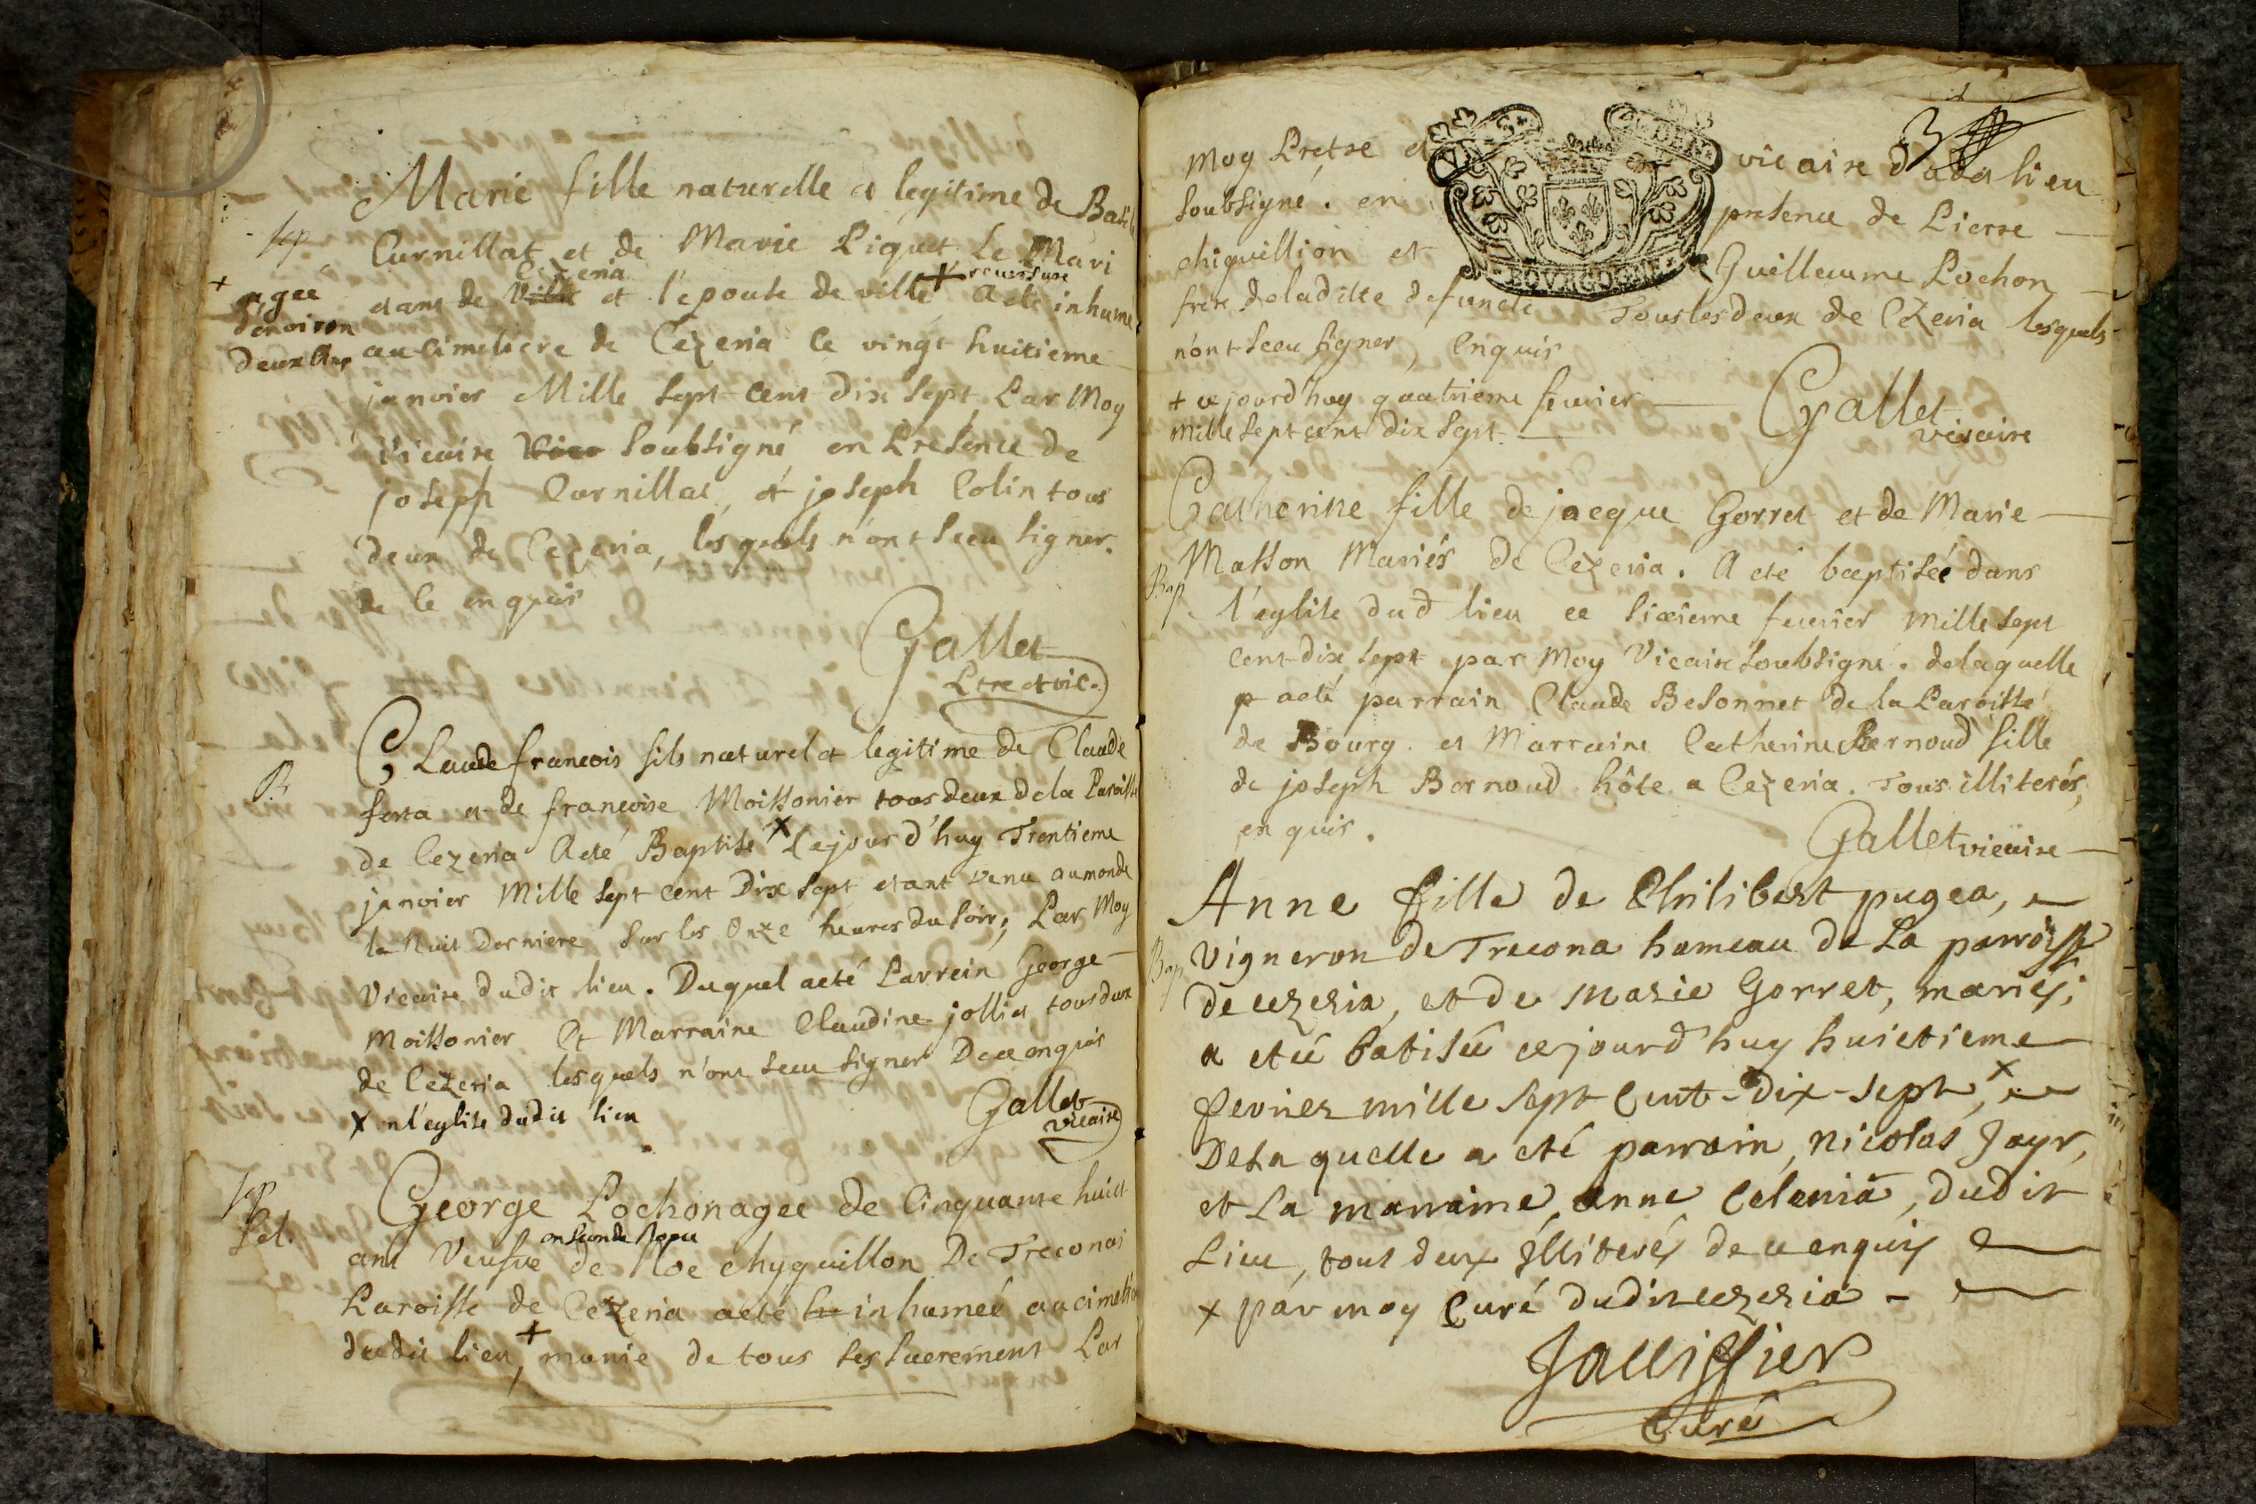 Marie fille naturelle et legitime de
Sep. Curnillat et de Marie Piquet le Mari
etant de Ville Cezeria et l'epouse de ville + a eté inhumé
+ agée d'environ deux ans
au cimetiere de Cezeria le vingt huitieme
janvier Mille sept cent dix sept Par Moy
vicaire soubsigné en Presence de
joseph Curnillat, et joseph Colin tous
deux de Cezeria, les quels n'ont sceu signer.
de ce enquis
Gallet
Ptre et vic.
B. Claude francois fils naturel et legitime de Claude
ferra et de francoise Moissonier tous deux de la Paroisse
de Cezeria A eté Baptisé x Cejourd'huy Trentieme
janvier Mille sept cent Dix sept etant venu au monde
la Nuit Derniere sur les Onze heures du soir, Par Moy
Vicaire dudit lieu. Duquel a eté Parrein George
Moissonier Et Marraine Claudine jollier tous deux
de Cezeria lesquels n'ont sceu signer De ce enquis
x n l'eglise dudit lieu
Gallet
vicaire
Sep.
George Pochon agee de Cinquante huict
ans Veufve en seconde Nopce de Noe chyquillon De Treconai
Paroisse de Cezeria a eté inhumeé au cimetier
dudit lieu, + munie de tous ses sacrement Par
3
moy Pretre et vicaire dudit lieu
soubsigné. en presence de Pierre
BOURGOGNE
chiquillion et Guilleaume Pochon
frere de ladite defuncte Tous les deux de Cezeria lesquels
n'ont sceu signer, Enquis
+ cejourd'huy quatrieme fevrier
mille sept cent dix sept.
Gallet
vicaire
Catherine fille de jacque Gorret et de Marie
Masson Mariés de Cezeria. A eté baptiseé dans
Bap. l'eglise dud lieu ce sixieme fevrier mille sept
cent dix sept par Moy Vicaire soubsigné. de laquelle
p a eté parrain Claude Besonnet de la Paroisse
de Bourg. et Marraine Catherine Bernoud fille
de joseph Bernoud hôte a Cezeria. Tous illiterés,
enquis.
Gallet vicaire
Anne fille de Philibert pugea,
Bap vigneron de Trecona hameau de La parroisse
de cezeria, et de Marie Gorret, mariés;
a eteé batiseé cejourd'huy huictieme
fevrier mille sept Cent-Dix-sept, x
De la quelle a eté parrain, Nicolas Jayr,
et La marraine, anne Celenia, dudit
Lieu, tous deux Illiterés de ce enquis
x par moy Curé dudit cezeria -
Jallissier
Curé